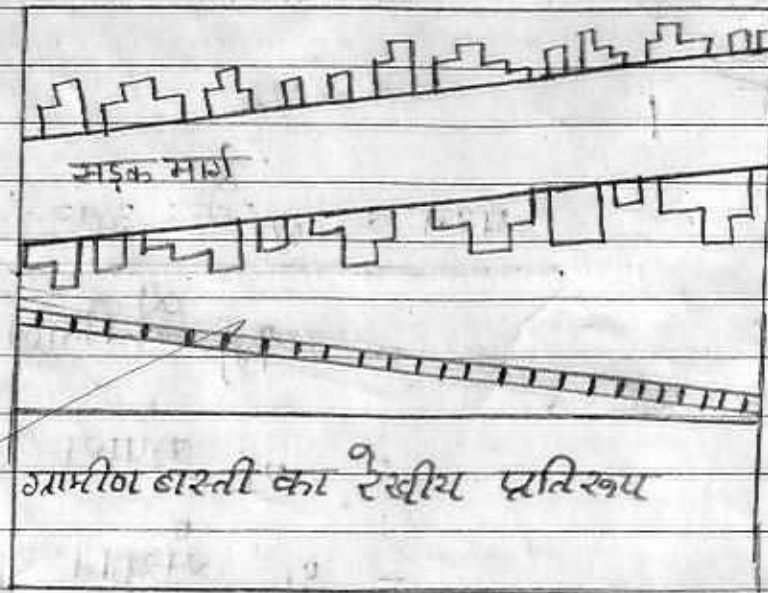 सड़क मार्ग
ग्रामीण बस्ती का रेखीय प्रतिरूप